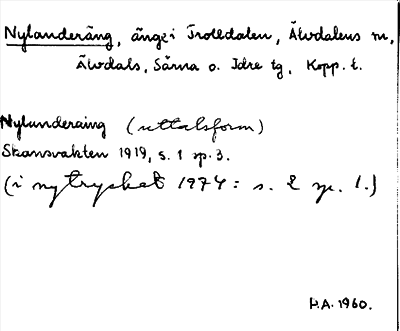 Nylanderäng, änge i Trolldalen, Älvdalens sn,
Älvdals, Särna o. Idre tg, Kopp. l.
Nylanderaing (uttalsform)
Skansvakten 1919, s. 1 sp. 3.
(i nytrycket 1974: s. 2 sp. 1.)
P.A. 1960.